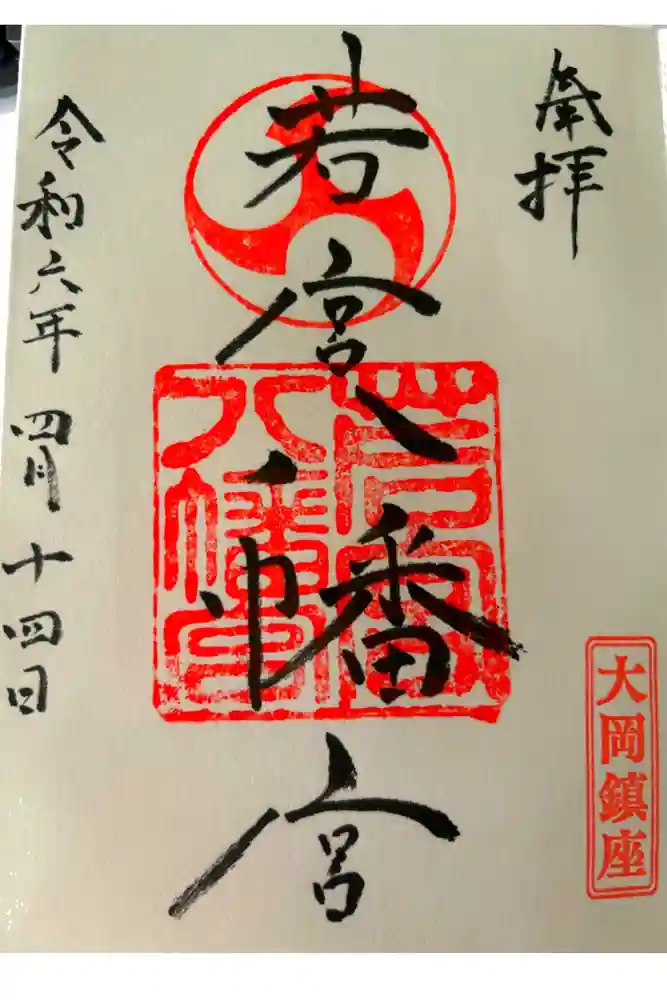 奉拝
大岡鎮座
若宮八幡宮
若宮八幡宮
令和六年四月十四日